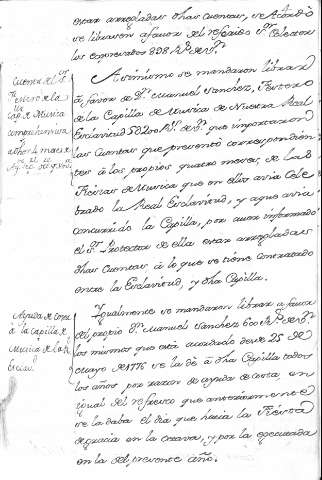 estar arregladas dhas cuentas, se Acordó
se librasen a favor del referido Sr. Celestor
los expresados 898 Rs. de Vn.
Cuenta del Sr.
Tesorero de la
Cap. de Musica
comprehensiva
de los 4 meses
Asimismo se mandaron librar
à favor de Dn. Manuel Sanchez, Tesorero
de la Capilla de Musica de Nuestra Real
Esclavitud 5820 Rs. de Vn. que importaron
las Cuentas que presentó correspondien-
tes à los propios quatro meses, de las
Fiestas de Musica que en ellos avia Cele-
brado la Real Esclavitud, y a que avia
concurrido la Capilla, por aver informado
el Sr. Protector de ella estar arregladas
dhas Cuentas à lo que se tiene contratado
entre la Esclavitud, y dha Capilla.
Ayuda de costa
à la Capilla de
Musica de la
Igualmente se mandaron librar a favor
del propio Dn. Manuel Sanchez 600 Rs. de Vn.
los mismos que está acordado desde 25 de
Mayo de 1776 se la dé à dha Capilla todos
los años, por razon de ayuda de costa en
igual del refresco que anteriormente
se la daba el dia que hacia la Fiesta
de gracia en la octava, y por la egecutada
en la del presente año.